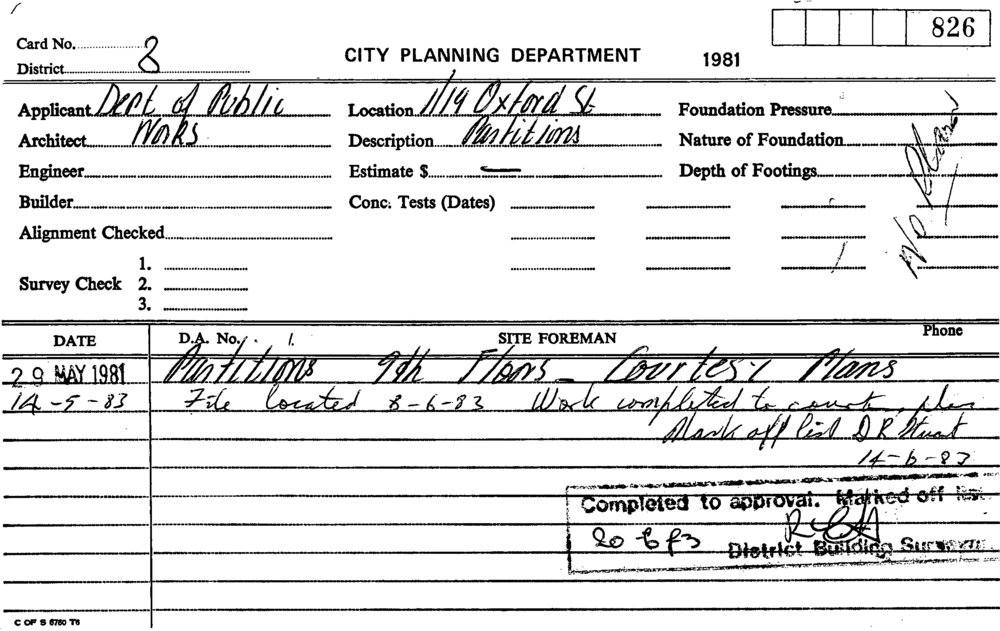 826
Card No.
District 8
CITY PLANNING DEPARTMENT 1981
Applicant Dept of Public Location 1/19 Oxford St Foundation Pressure
Architect Works Description Partitions Nature of Foundation
Engineer Estimate $ — Depth of Footings
Builder Conc. Tests (Dates)
Alignment Checked
1.
Survey Check 2.
3.
DATE D.A. No. SITE FOREMAN Phone
29 MAY 1981 Partitions 9th Floors - Courtesy Plans
14-9-83 File located 8-6-83 Work completed to
Mark off list D R Stuart
14-6-83
Completed to approval. Marked off list
20 6 83
District Building Surveyor
C OF S 6760 T6